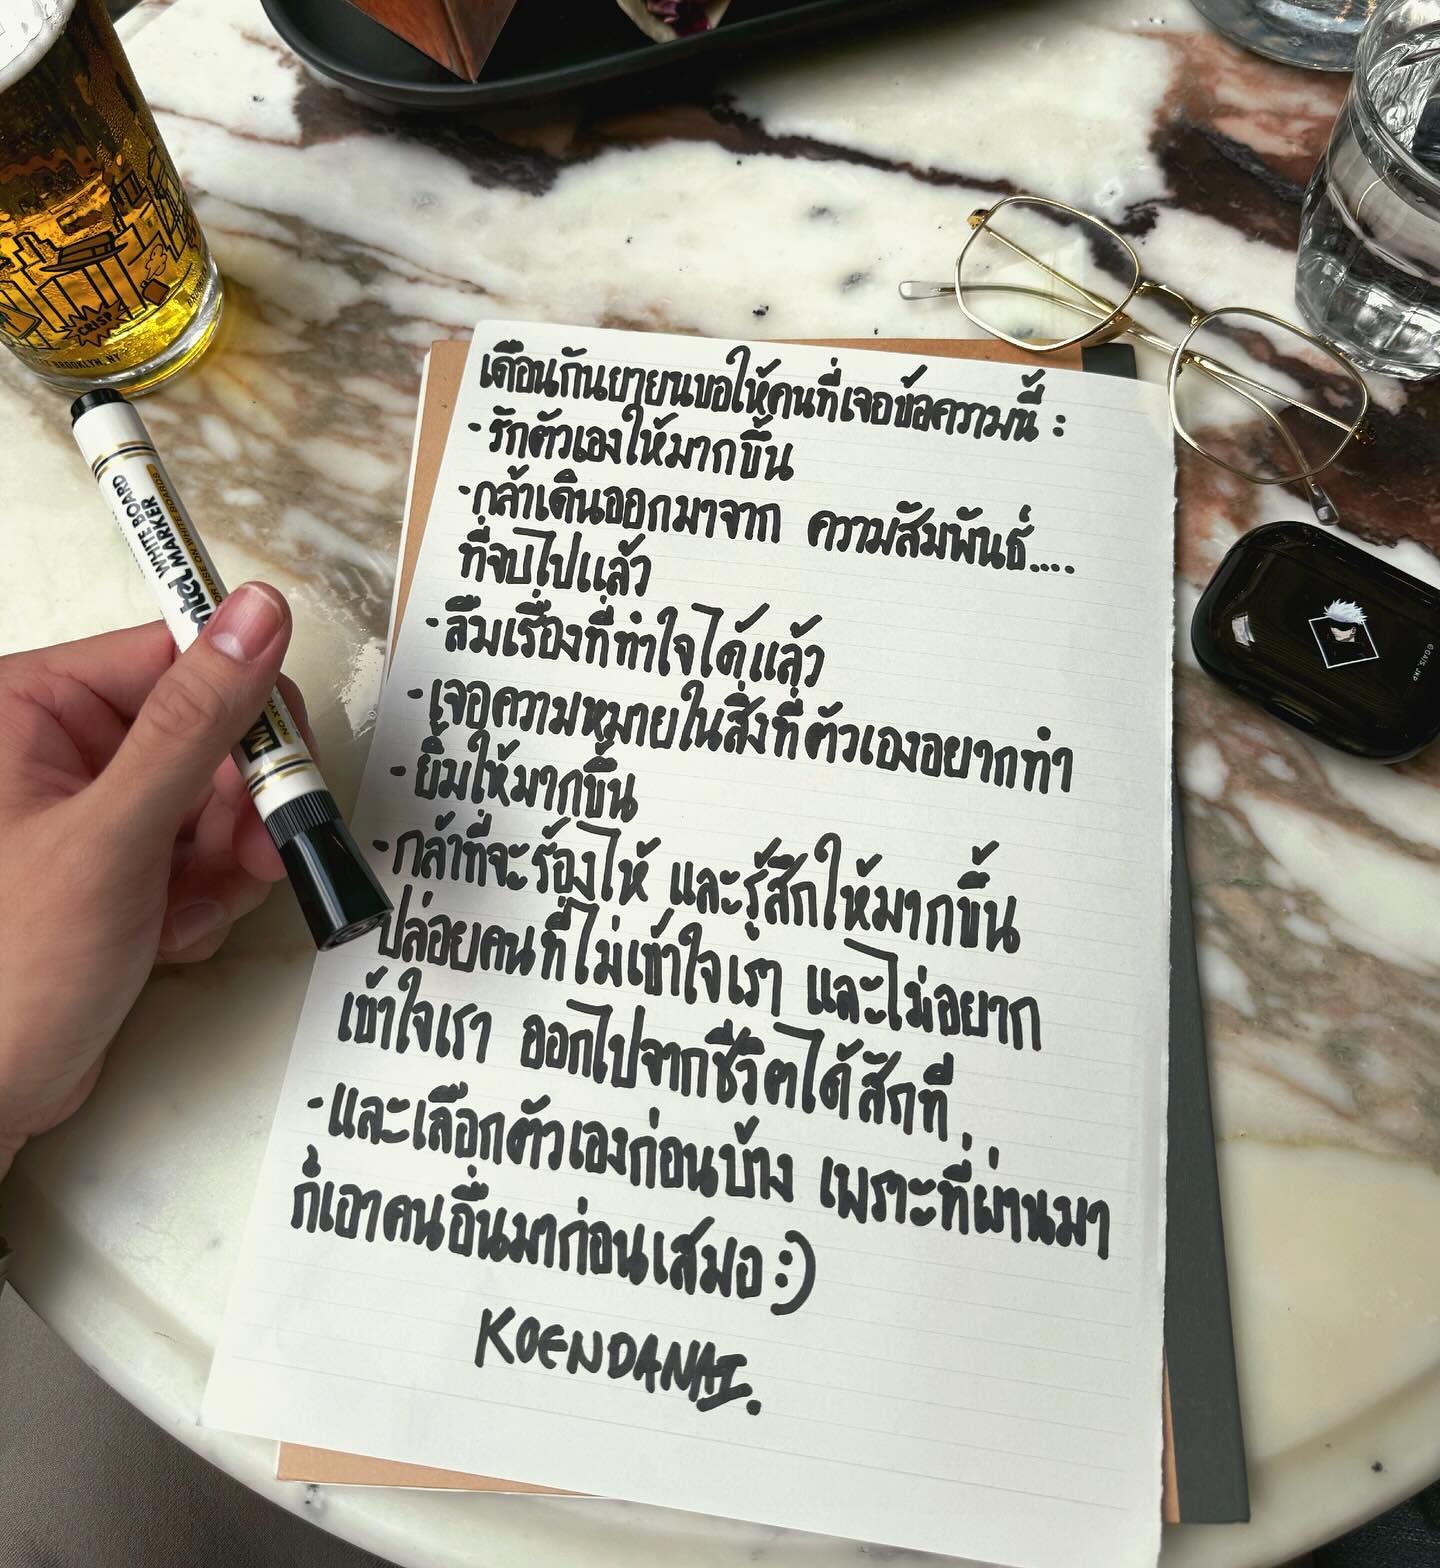 เดือนกันยายนขอให้คนที่เจอข้อความนี้ :
- รักตัวเองให้มากขึ้น
- กล้าเดินออกมาจาก ความสัมพันธ์....
ที่จบไปแล้ว
- ลืมเรื่องที่ทำใจได้แล้ว
- เจอความหมายในสิ่งที่ตัวเองอยากทำ
- ยิ้มให้มากขึ้น
- กล้าที่จะร้องไห้ และรู้สึกให้มากขึ้น
ปล่อยคนที่ไม่เข้าใจเรา และไม่อยาก
เข้าใจเรา ออกไปจากชีวิตได้สักที
- และเลือกตัวเองก่อนบ้าง เพราะที่ผ่านมา
ก็เอาคนอื่นมาก่อนเสมอ :)
KOENDANAI.
WHITE BOARD
MARKER
BROOKLYN, NY
CRISP